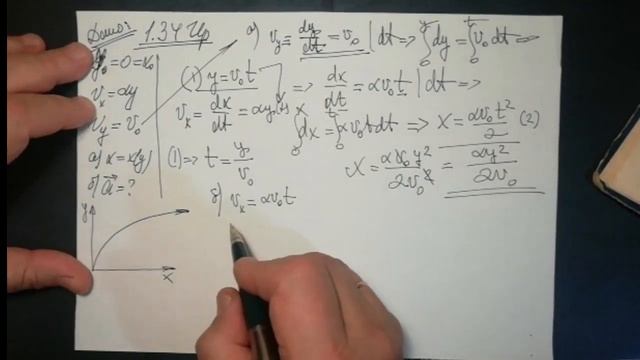 Дано:
1.34 Ир
y₀ = 0 = x₀
vₓ = αy
v_y = v₀
а) x = x(y)
б) a⃗ = ?
y
x
а) v_y = dy/dt = v₀ | dt ⇒ ∫₀^y dy = ∫₀^t v₀ dt ⇒
(1) y = v₀t ⇒ dx/dt = αv₀t | dt ⇒
vₓ = dx/dt = αy
∫₀^x dx = ∫₀^t αv₀t dt ⇒ x = αv₀t²/2 (2)
(1) ⇒ t = y/v₀
x = αv₀y²/2v₀² = αy²/2v₀
б) vₓ = αv₀t